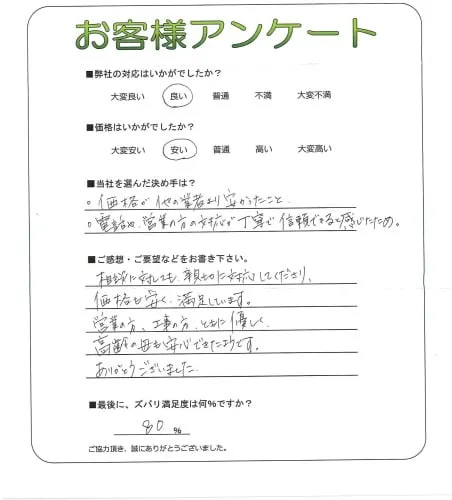 お客様アンケート
■弊社の対応はいかがでしたか？
大変良い 良い 普通 不満 大変不満
■価格はいかがでしたか？
大変安い 安い 普通 高い 大変高い
■当社を選んだ決め手は？
・価格が他の業者より安かったこと
・電話や、営業の方の対応が丁寧で信頼できると感じたため。
■ご感想・ご要望などをお書き下さい。
相談に対しても、親切に対応してくださり、
価格も安く、満足しています。
営業の方、工事の方、ともに優しく、
高齢の母も安心できたようです。
ありがとうございました。
■最後に、ズバリ満足度は何％ですか？
80 ％
ご協力頂き、誠にありがとうございました。